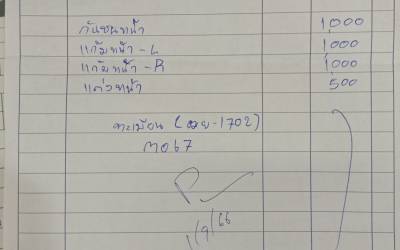 กันชนหน้า 1,000
แก้มหน้า - L 1,000
แก้มหน้า - R 1,000
แค่วหน้า 500
ทะเบียน (ฌย-1702)
ทอ67
1/9/66